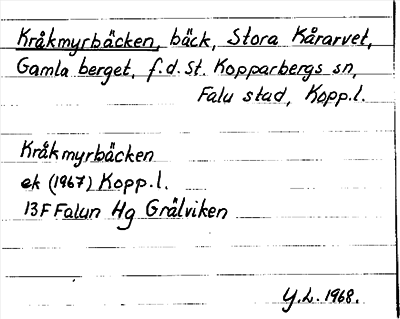 Kråkmyrbäcken, bäck, Stora Kårarvet,
Gamla berget, f.d. St. Kopparbergs sn,
Falu stad, Kopp.l.
Kråkmyrbäcken
ek (1967) Kopp.l.
13F Falun Hg Grälviken
Y.L. 1968.